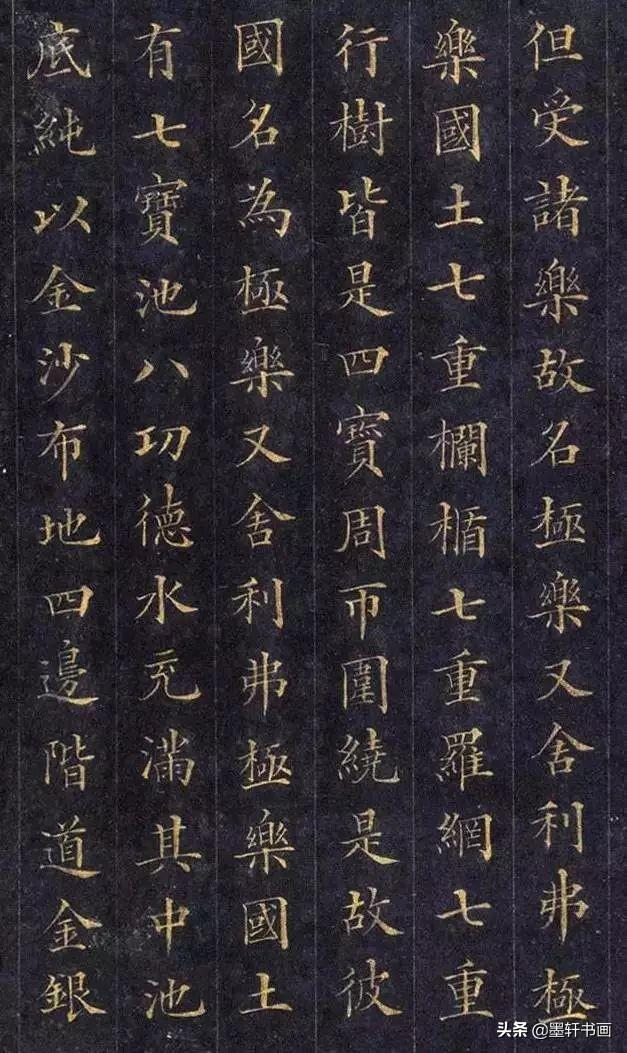 但受諸樂故名極樂又舍利弗極
樂國土七重欄楯七重羅網七重
行樹皆是四寶周帀圍繞是故彼
國名為極樂又舍利弗極樂國土
有七寶池八功德水充滿其中池
底純以金沙布地四邊階道金銀
头条 @墨轩书画